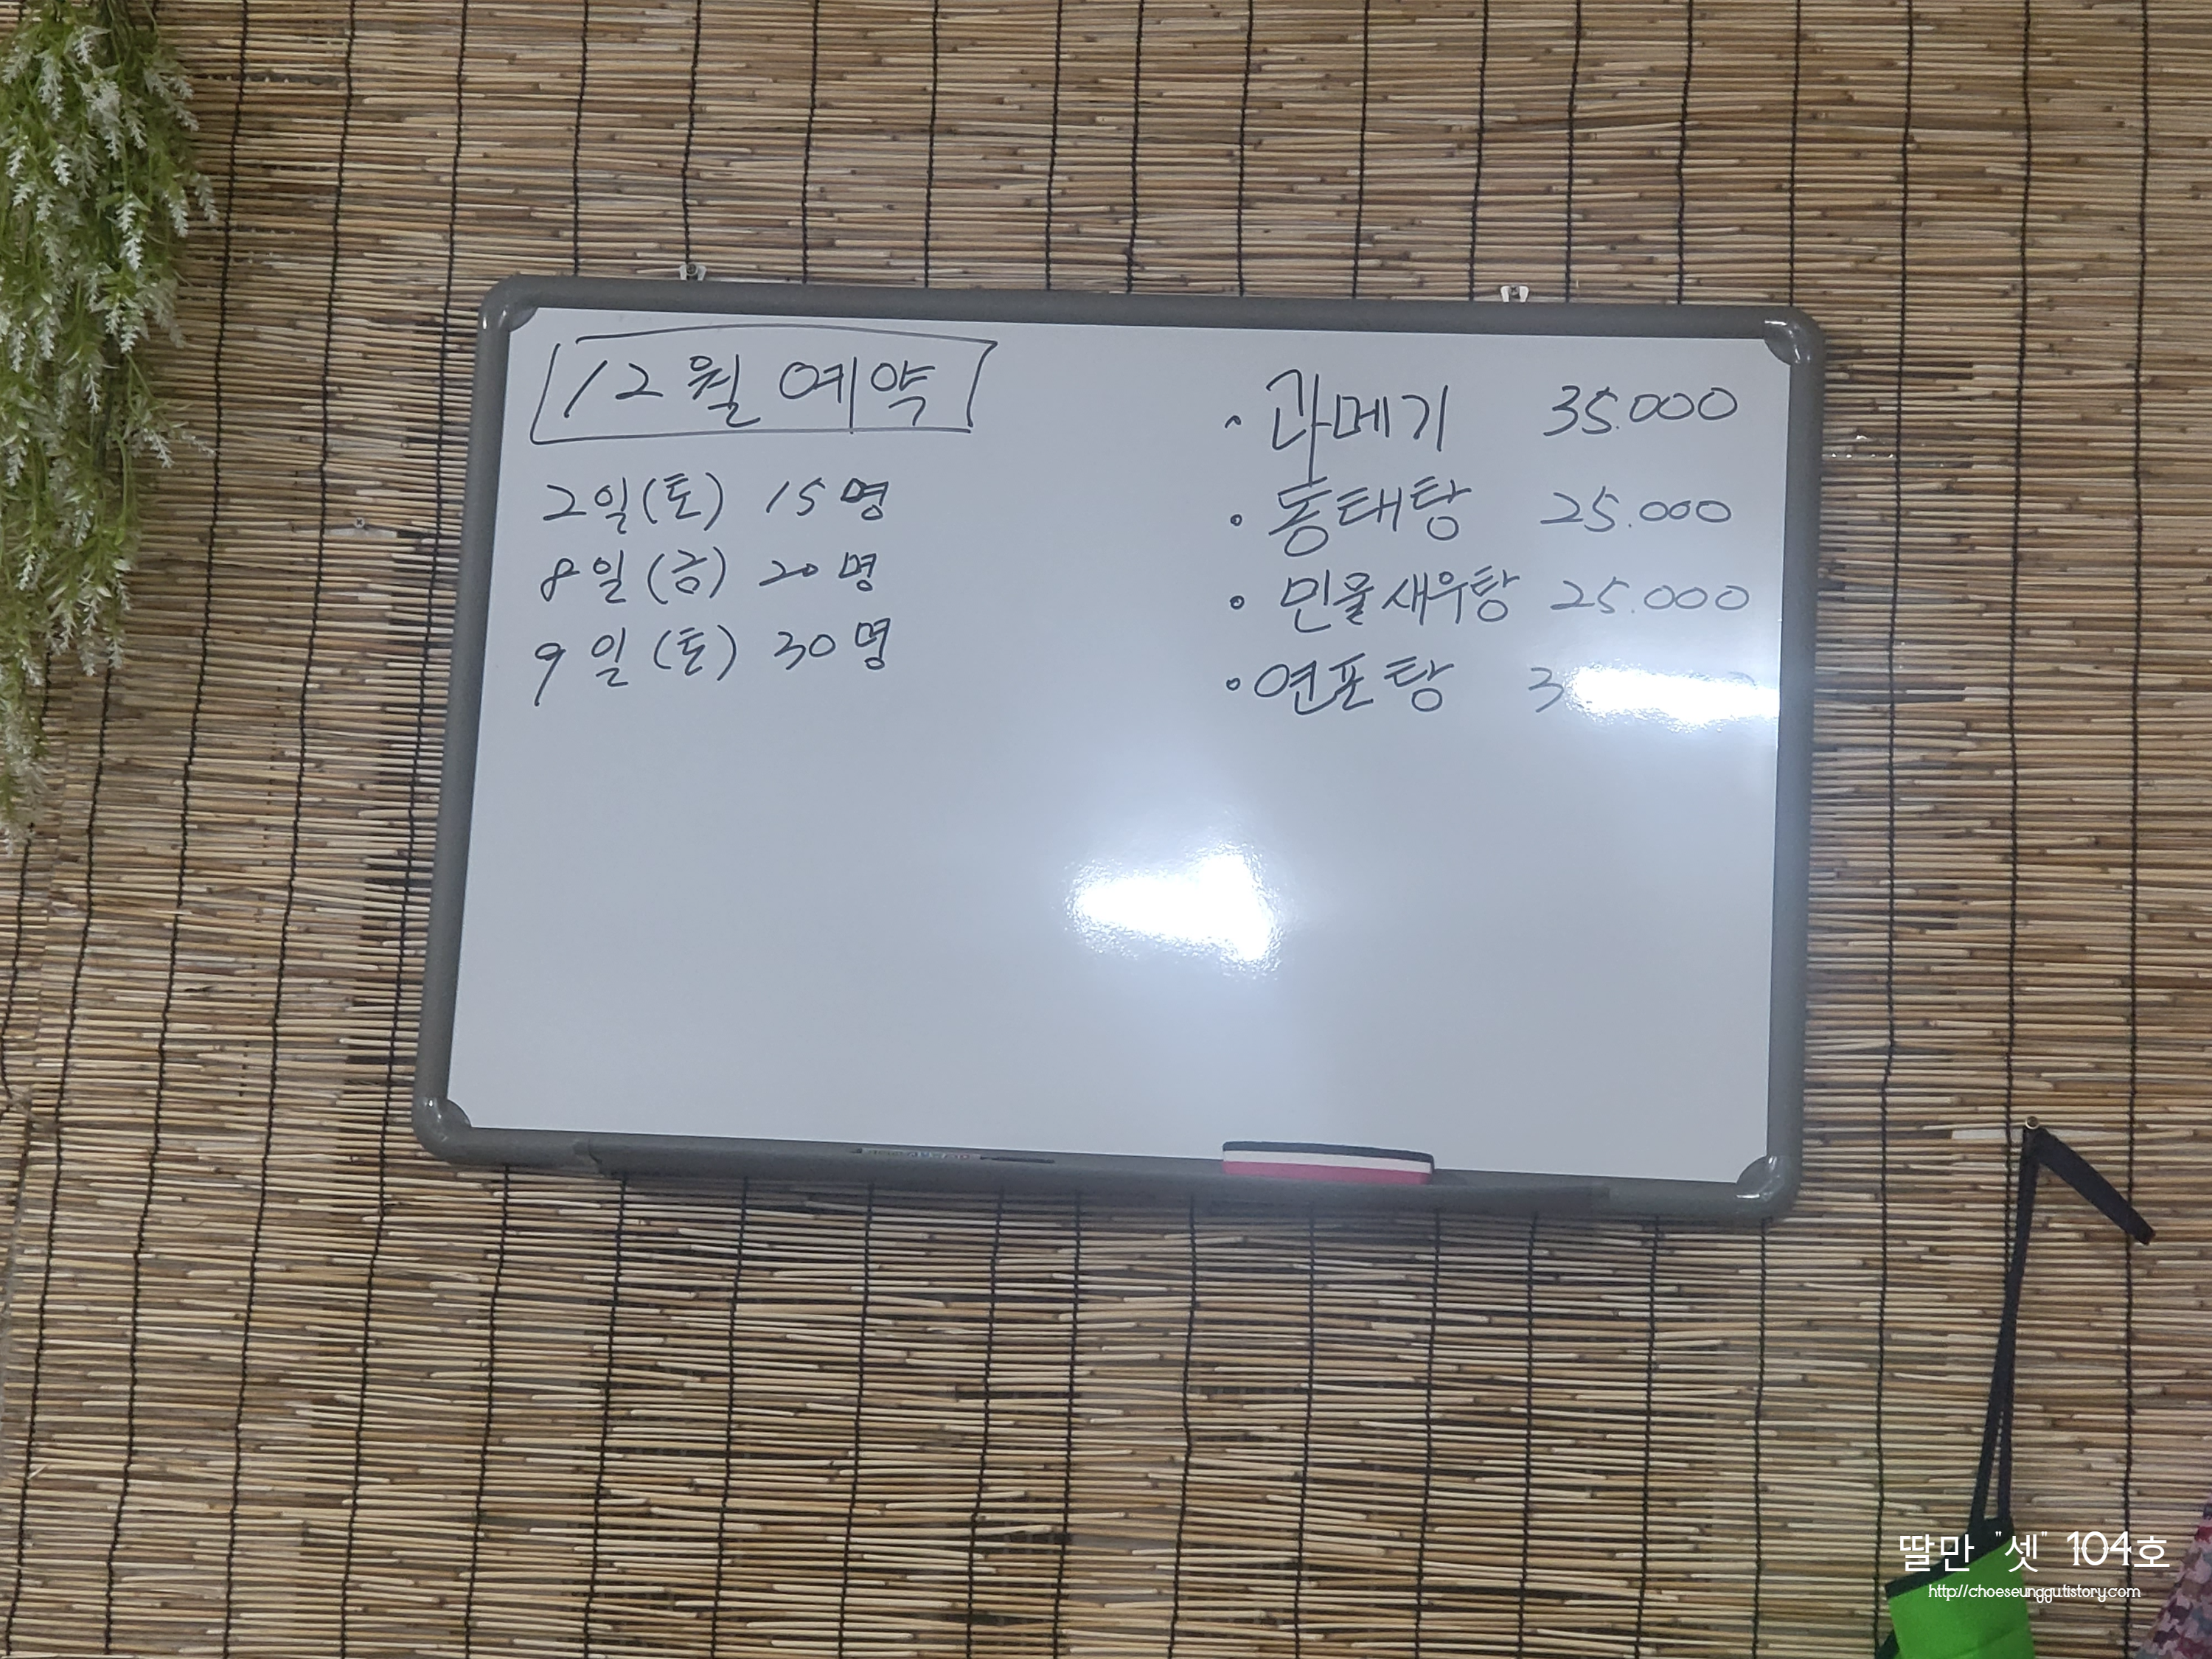 12월 예약
2일(토) 15명
8일(금) 20명
9일(토) 30명
· 과메기 35.000
· 동태탕 25.000
· 민물새우탕 25.000
· 연포탕
딸만 "셋" 104호
http://choeseunggu.tistory.com